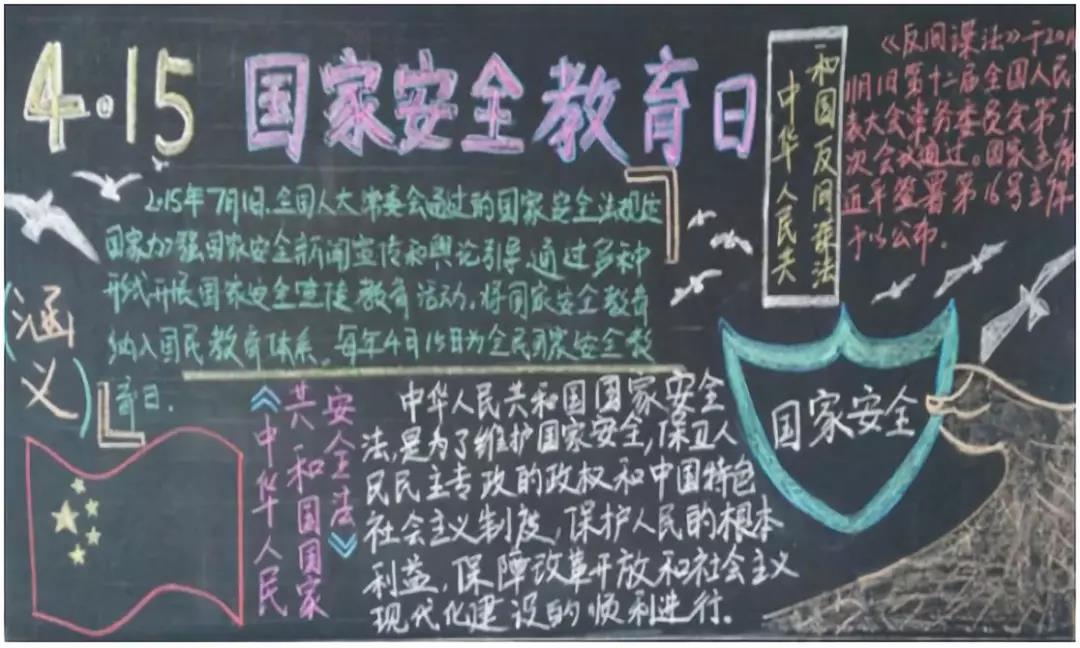 4.15 国家安全教育日
2.15年7月1日,全国人大常委会通过的国家安全法规定
国家加强国家安全新闻宣传和舆论引导,通过多种
形式开展国家安全宣传教育活动,将国家安全教育
纳入国民教育体系。每年4月15日为全民国家安全教
育日.
(涵义)
中华人民共
和国反间谍法
《反间谍法》于201
11月1日第十二届全国人民
表大会常务委员会第十
次会议通过。国家主席
近平签署第16号主席
予以公布.
国家安全
《中华人民
共和国国家
安全法》
中华人民共和国国家安全
法,是为了维护国家安全,保卫人
民民主专政的政权和中国特色
社会主义制度,保护人民的根本
利益,保障改革开放和社会主义
现代化建设的顺利进行.